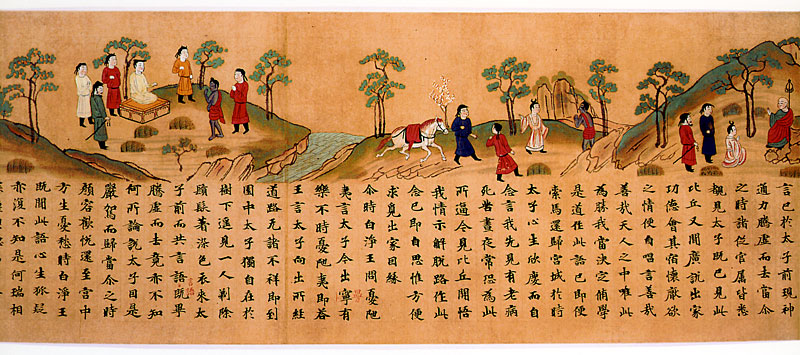 言已於太子前現神
通力騰虛而去當尒
之時諸從官屬皆悉
覩見太子既已見此
比丘又聞廣說出家
功德會其宿懷厭欲
之情便自唱言善哉
善哉天人之中唯此
為勝我當決定脩學
是道作此語已即便
索馬還歸宮城於時
太子心生欣慶而自
念言我先見有老病
死苦晝夜常恐為此
所逼今見比丘開悟
我情示解脫路作此
念已即自思惟方便
求覓出家因緣
尒時白淨王問憂陁
夷言太子今出寧有
樂不時憂陁夷即答
王言太子向出所經
道路无諸不祥即到
園中太子獨自在於
樹下遙見一人剃除
鬚髮著染色衣來太
子前而共言語既畢
騰虛而去竟亦不知
何所論說太子因是
嚴駕而歸當尒之時
顏容歡悅還至宮中
方生憂愁時白淨王
既聞此語心生狐疑
亦復不知是何瑞相